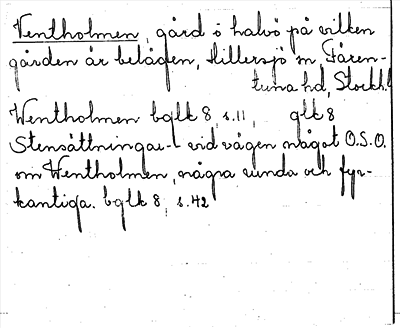 Ventholmen, gård o halvö på vilken
gården är belägen, Hillersjö sn, Fären-
tuna hd, Stockh.l
Wentholmen bglk 8, s.11, glk 8
Stensättningar - vid vägen något O.S.O.
om Wentholmen, några runda och fyr-
kantiga. bglk 8, s.42